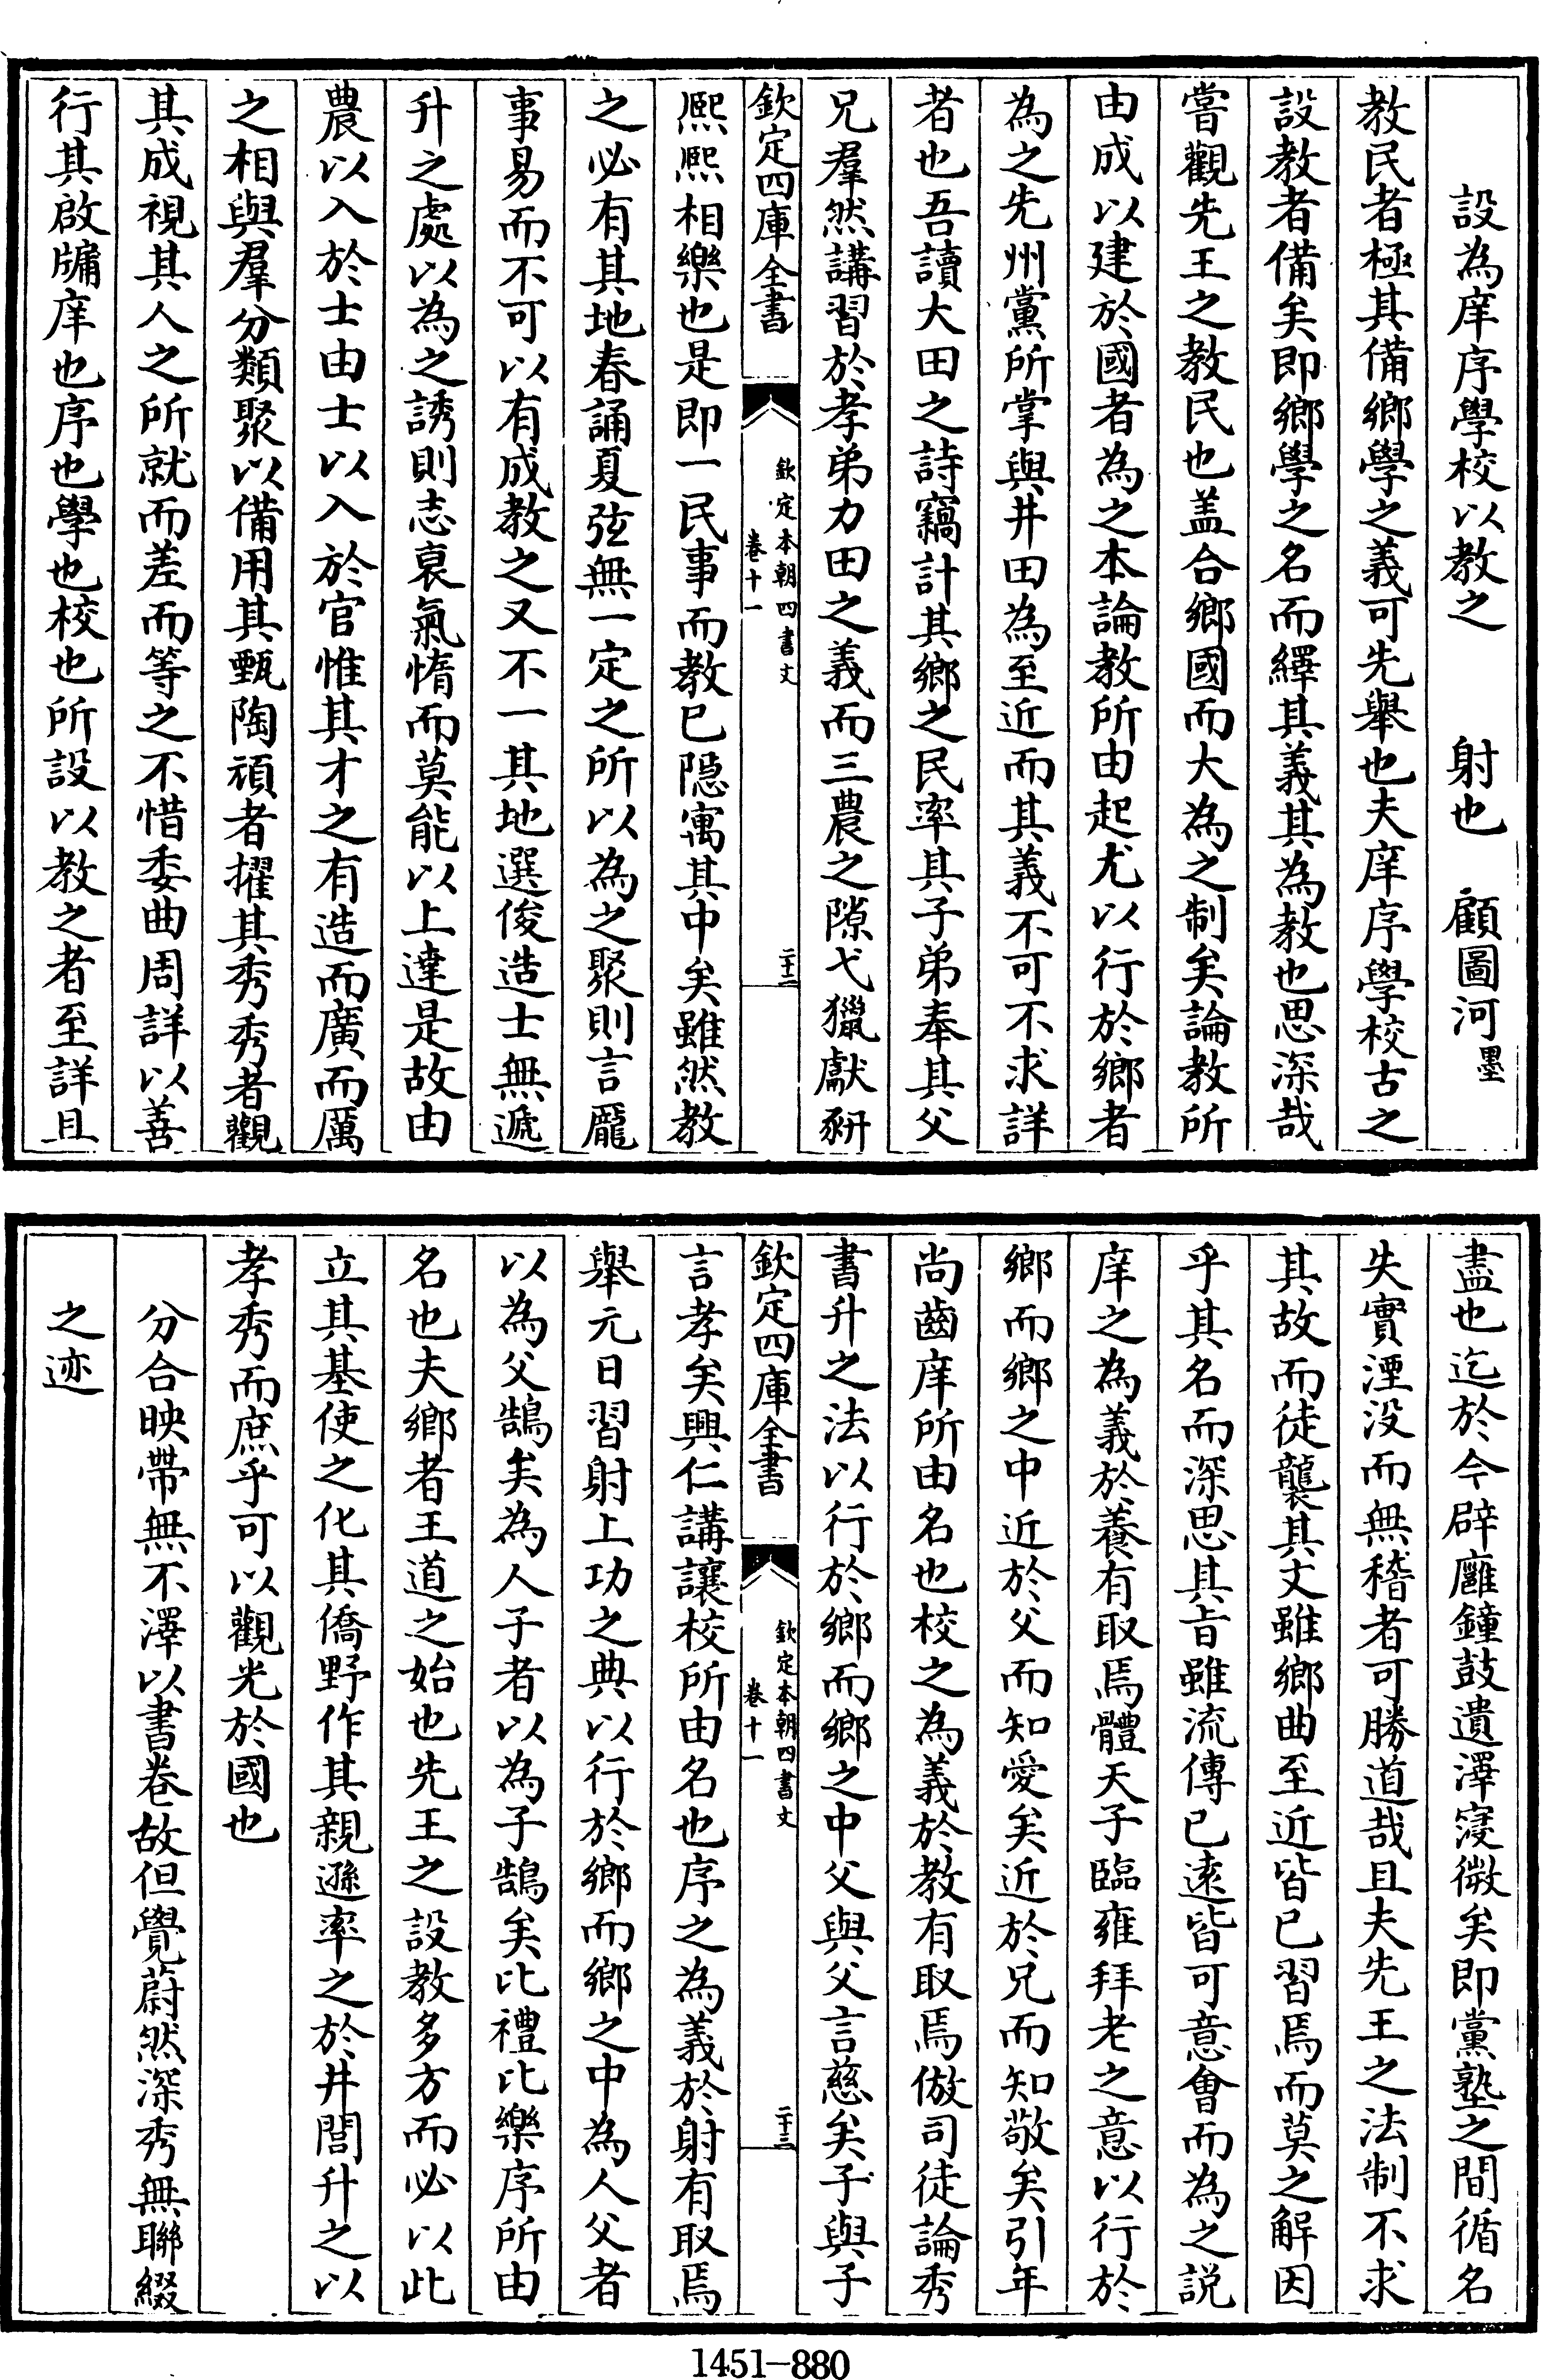 設為庠序學校以教之　射也　顧圖河墨
教民者極其備鄉學之義可先舉也夫庠序學校古之
設教者備矣即鄉學之名而繹其義其為教也思深哉
嘗觀先王之教民也盖合鄉國而大為之制矣論教所
由成以建於國者為之本論教所由起尤以行於鄉者
為之先州黨所掌與井田為至近而其義不可不求詳
者也吾讀大田之詩竊計其鄉之民率其子弟奉其父
兄羣然講習於孝弟力田之義而三農之隙弋獵獻豣
欽定四庫全書　欽定本朝四書文　卷十一　二十二
熈熈相樂也是即一民事而教已隱寓其中矣雖然教
之必有其地春誦夏弦無一定之所以為之聚則言龐
事易而不可以有成教之又不一其地選俊造士無遞
升之處以為之誘則志衰氣惰而莫能以上達是故由
農以入於士由士以入於官惟其才之有造而廣而厲
之相與羣分類聚以備用其甄陶頑者擢其秀秀者觀
其成視其人之所就而差而等之不惜委曲周詳以善
行其啟牗庠也序也學也校也所設以教之者至詳且
盡也迄於今辟廱鐘鼓遺澤寖微矣即黨塾之間循名
失實湮没而無稽者可勝道哉且夫先王之法制不求
其故而徒襲其文雖鄉曲至近皆已習焉而莫之解因
乎其名而深思其旨雖流傳已遠皆可意會而為之説
庠之為義於養有取焉體天子臨雍拜老之意以行於
鄉而鄉之中近於父而知愛矣近於兄而知敬矣引年
尚齒庠所由名也校之為義於教有取焉倣司徒論秀
書升之法以行於鄉而鄉之中父與父言慈矣子與子
欽定四庫全書　欽定本朝四書文　卷十一　二十三
言孝矣興仁講讓校所由名也序之為義於射有取焉
舉元日習射上功之典以行於鄉而鄉之中為人父者
以為父鵠矣為人子者以為子鵠矣比禮比樂序所由
名也夫鄉者王道之始也先王之設教多方而必以此
立其基使之化其僑野作其親遜率之於井閭升之以
孝秀而庶乎可以觀光於國也
分合映帶無不澤以書卷故但覺蔚然深秀無聯綴
之迹
1451—880